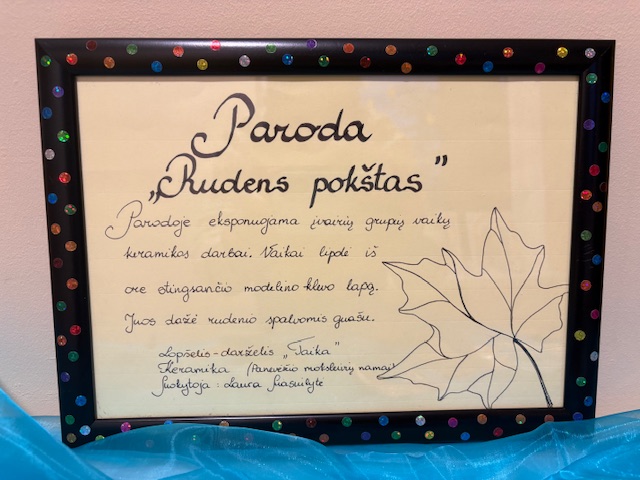 Paroda
„Rudens pokštas"
Parodoje eksponuojama įvairių grupių vaikų
keramikos darbai. Vaikai lipdė iš
ore stingsančio modelino klevo lapą.
Juos dažė rudenio spalvomis guašu.
Lopšelis-darželis „Taika"
Keramika (Panevėžio moksleivių namai)
Mokytoja: Laura